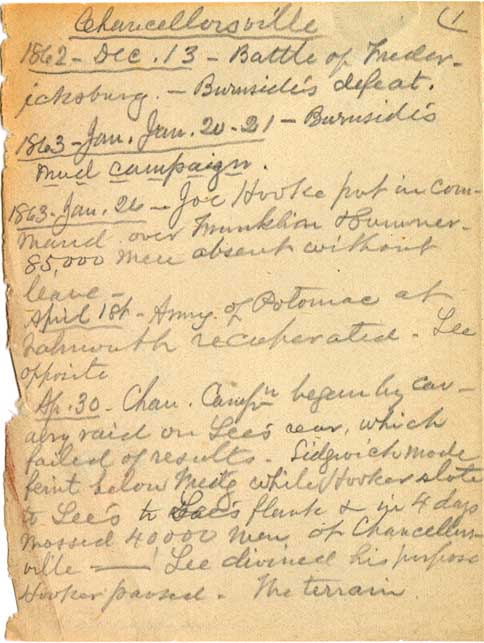 Chancellorsville
(1
1862 - Dec. 13 - Battle of Freder-
icksburg. - Burnside's defeat.
1863 - Jan. Jan. 20-21 - Burnside's
mud campaign.
1863 - Jan. 26 - Joe Hooke put in com-
mand over Franklin & Sumner -
85,000 men absent without
leave -
April 1st - Army of Potomac at
Falmouth recuperated - Lee
opposite
Ap. 30 - Chan. Camp'n began by cav-
alry raid on Lee's rear, which
failed of results - Sidgwick made
feint below while Hooker stole
to Lee's to Lee's flank & in 4 days
massed 40000 men at Chancellors-
ville — Lee divined his purpose
Hooker paused - The terrain.